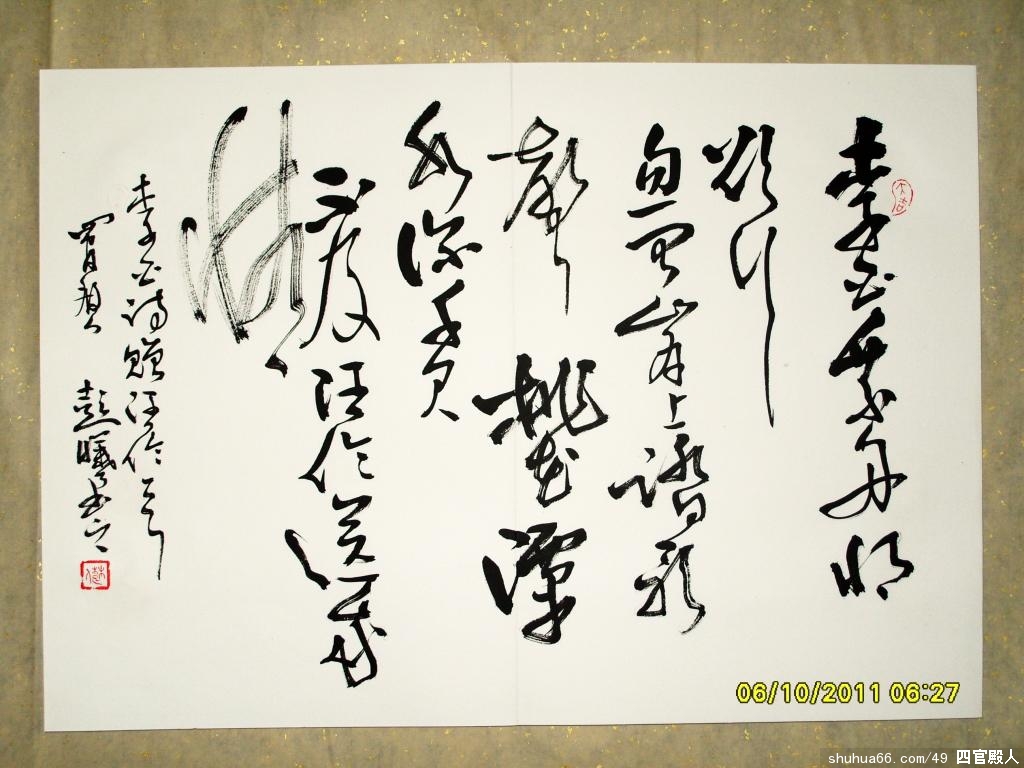 李白乘舟将
欲行
忽闻岸上踏歌
聲桃花潭
水深千尺
不及汪伦送我
情
李白诗赠汪伦
彭曦
06/10/2011 06:27
shuhua66.com/49 四官殿人